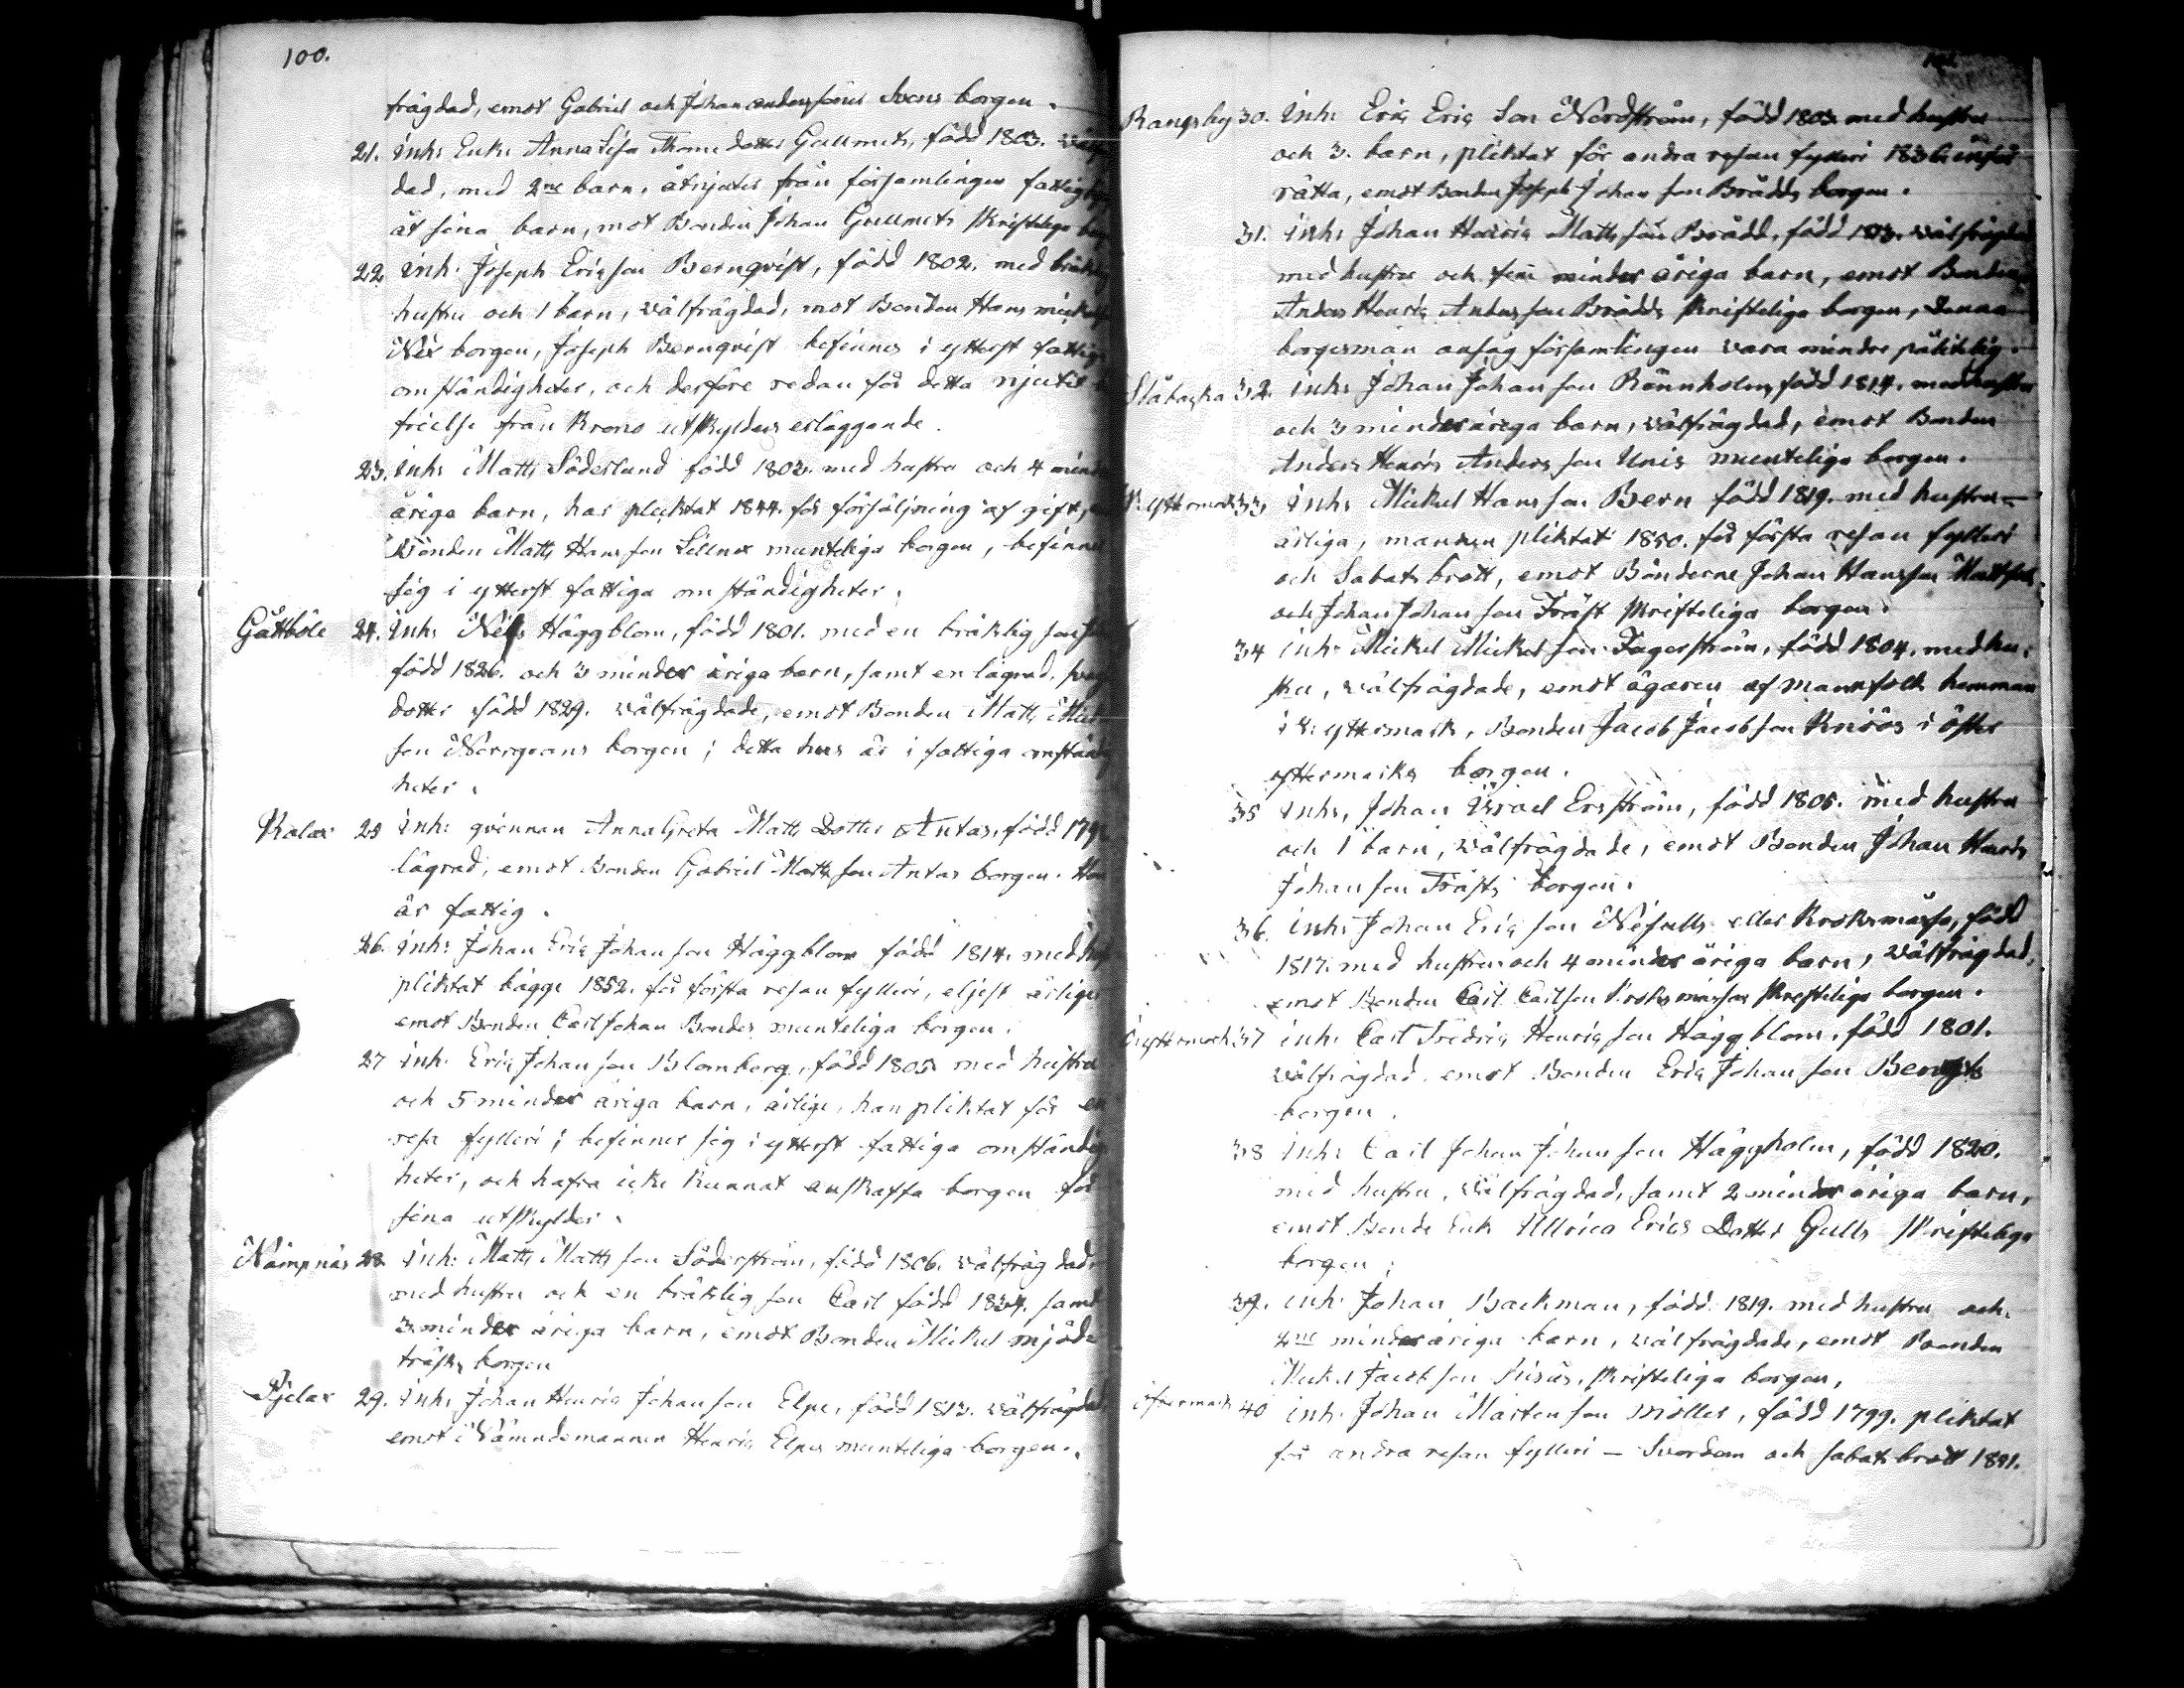 100.
frägdad, emot Gabriel och Johan Anderssöner Svens borgen.
21. Inhs Enk. Anna Lisa Thomedotter Gullmets, född 1803.
dad, med 2ne barn, åtnjuter från församlingen fattig
åt sina barn, mot Bonden Johan Gullmets skrifteliga
22. Inh. Joseph Ericsson Bernqvist, född 1802. med bräklig
hustru och 1 barn, välfrägdad, mot Bonden Hans
Nix borgen, Joseph Bernqvist befinnes i ytterst fattiga
omständigheter, och derföre redan för detta njutit
frielse från Krono utskylders erläggande.
23. Inhs Matts Söderlund född 1803. med hustru och 4 minder
åriga barn, har pliktat 1844. för försäljning af gift,
Bonden Matts Hansson Lillnix munteliga borgen, befinner
sig i ytterst fattiga omständigheter.
Gåttböle 24. Inhs Nils Häggblom, född 1801. med en bräklig son
född 1826. och 3 minder åriga barn, samt en lägrad
dotter född 1829. välfrägdade, emot Bonden Matts
son Norrgrans borgen; detta hus är i fattiga omständig
heter.
Kalax 25 Inh: qvinnan Anna Greta Matts Dotter Antas, född
lägrad, emot Bonden Gabriel Mattsson Antas borgen. Hon
är fattig.
26. Inhs Johan Eric Johansson Häggblom född 1814. med
pliktat bägge 1852. för första resan fylleri, eljest ärliga
emot Bonden Carl Johan Bondes munteliga borgen.
27 Inh. Eric Johansson Blomberg, född 1805. med hustru
och 5 minder åriga barn, ärlige, han pliktat för en
resa fylleri; befinner sig i ytterst fattiga omständig
heter, och hafva icke kunnat anskaffa borgen för
sina utskylder.
Nämpnäs 28. Inh: Matts Mattsson Söderström, född 1806. välfrägdad,
med hustru och en bräklig son Carl född 1834. samt
3 minder åriga barn, emot Bonden Mickel Mjöd-
träsks borgen
Pjelax 29. Inhs Johan Henric Johansson Elpe, född 1813. välfrägdad
emot Nämndemannen Henric Elpes munteliga borgen.
Rangsby 30. Inh: Eric Ericsson Nordström, född 1803. med hustru
och 3. barn, pliktat för andra resan fylleri 1836. inför
rätta, emot Bonden Joseph Johansson Brädds borgen.
31. Inhs Johan Henric Mattsson Brädd, född 1813. välfrägdad
med hustru och fem minder åriga barn, emot Bonden
Anders Henric Andersson Brädds skrifteliga borgen, Denna
borgesman ansåg församlingen vara mindre pålitelig.
Ståbacka 32. Inhs Johan Johansson Rönnholm, född 1814. med hustru
och 3 minderåriga barn, välfrägdad, emot Bonden
Anders Henrics Andersson Unis munteliga borgen.
V. yttermark 33 Inhs Mickel Hansson Bern född 1819. med hustru
ärliga, mannen pliktat 1850. för första resan fylleri
och Sabatsbrott, emot Bönderne Johan Hansson
och Johan Johansson Träsk skrifteliga borgen.
34 Inh: Mickel Mickelsson Fagerström, född 1804. med hu-
stru, välfrägdade, emot ägaren af Mannfolk hemman
i V. yttermark, Bonden Jacob Jacobsson Knöös i öster
yttermarks borgen.
35 Inhs, Johan Israel Enström, född 1805. med hustru
och 1 barn, välfrägdade, emot Bonden Johan Henric
Johansson Träsks borgen.
36. Inhs Johan Ericsson Nisulls eller Kroksmarsa, född
1817. med hustru och 4 minder åriga barn, välfrägdad,
emot Bonden Carl Carlsson Kroksmarsas skrifteliga borgen.
Ö. yttermark 37 Inh. Carl Fredric Henricsson Häggblom, född 1801.
välfrägdad, emot Bonden Eric Johansson Bengts
borgen.
38 Inh: Carl Johan Johansson Häggholm, född 1820.
med hustru, välfrägdad, samt 2 minder åriga barn,
emot Bonde Enk. Ullrica Erics Dotter Gulls skrifteliga
borgen;
39. Inh: Johan Backman, född 1819. med hustru och
4ne minderåriga barn, välfrägdade, emot Bonden
Mickel Jacobsson skrifteliga borgen,
öfvermark 40 Inh. Johan Mårtensson Möller, född 1799. pliktat
för andra resan fylleri – Svordom och sabatsbrott 1821.